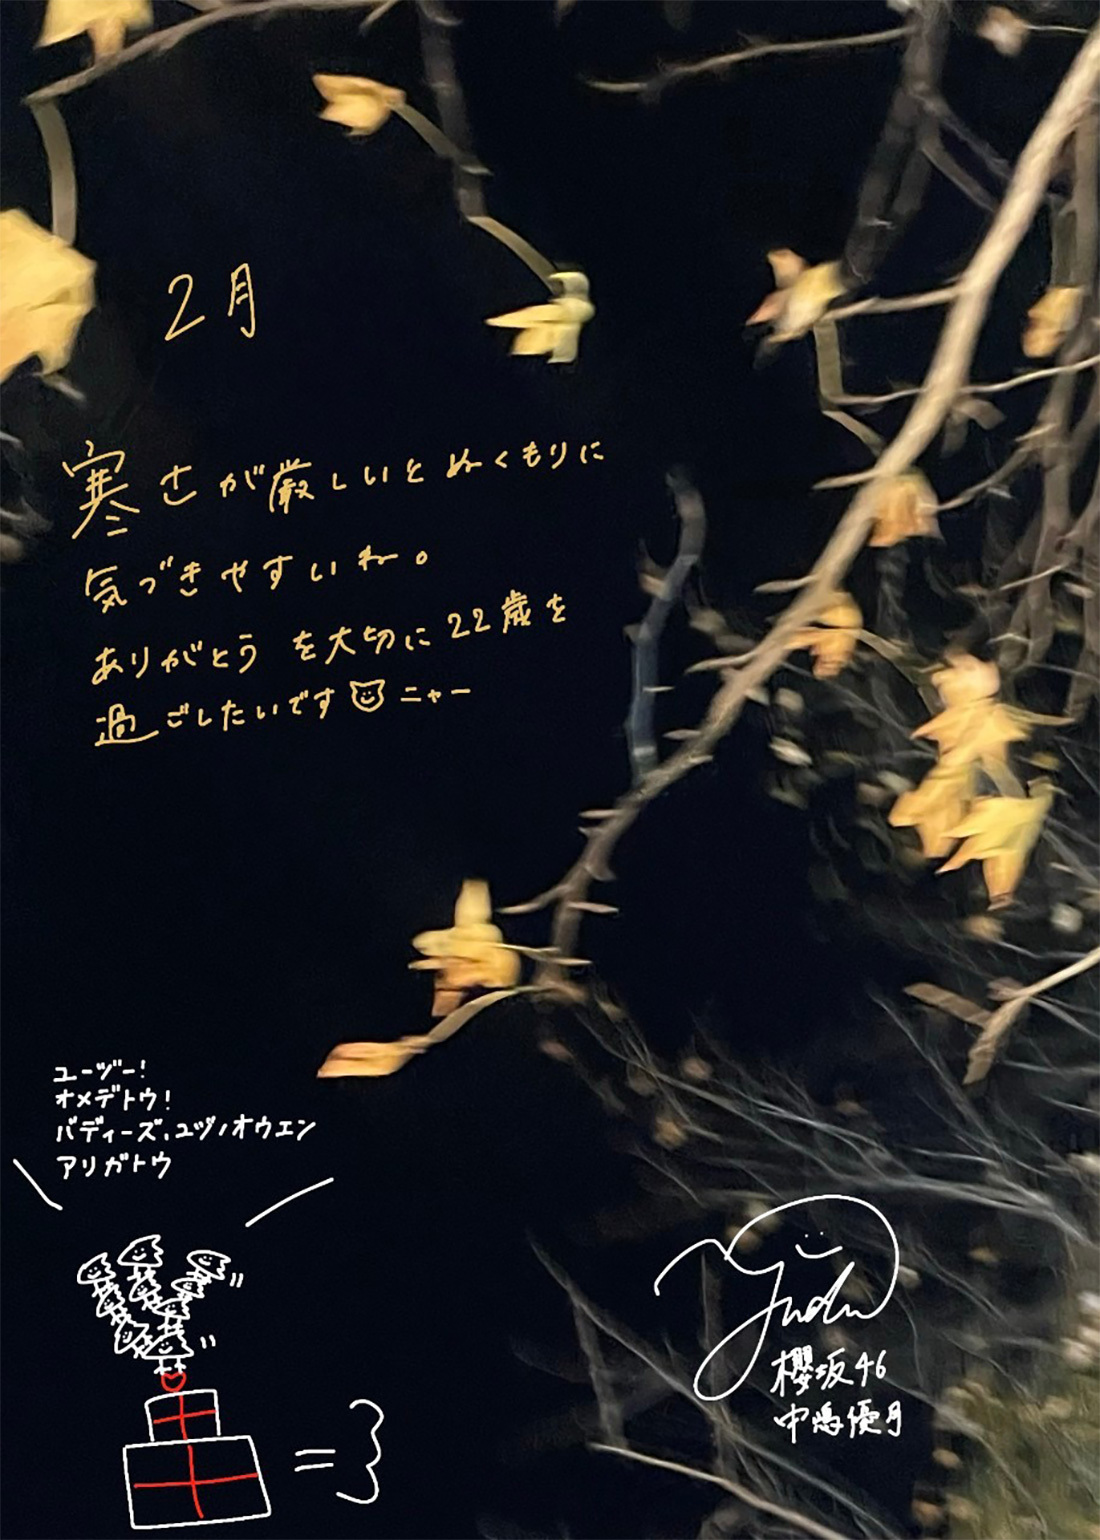 2月
寒さが厳しいとぬくもりに
気づきやすいね。
ありがとうを大切に22歳を
過ごしたいです ニャー
ユーヅー!
オメデトウ!
バディーズ、ユヅノオウエン
アリガトウ
Yudu
櫻坂46
中嶋優月